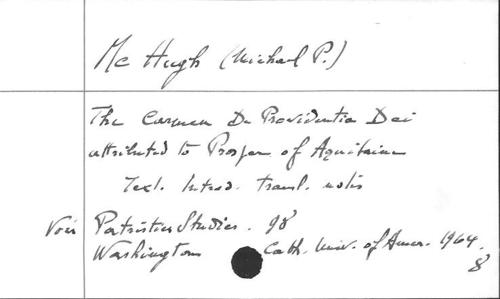 Mc Hugh (Michael P.)
The Carmen De Providentia Dei
attributed to Prosper of Aquitaine
Text. Introd. transl. notes
Voir Patristic Studies. 98
Washington Cath. Univ. of Amer. 1964.
8